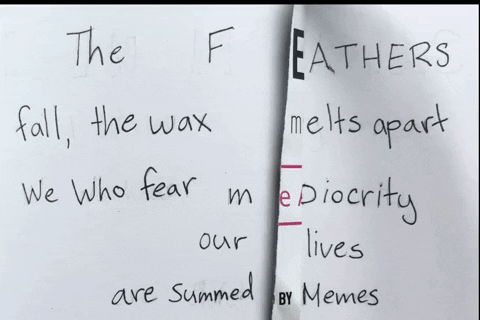 The FEATHERS
fall, the wax melts apart
We Who fear meDiocrity
our lives
are Summed BY Memes